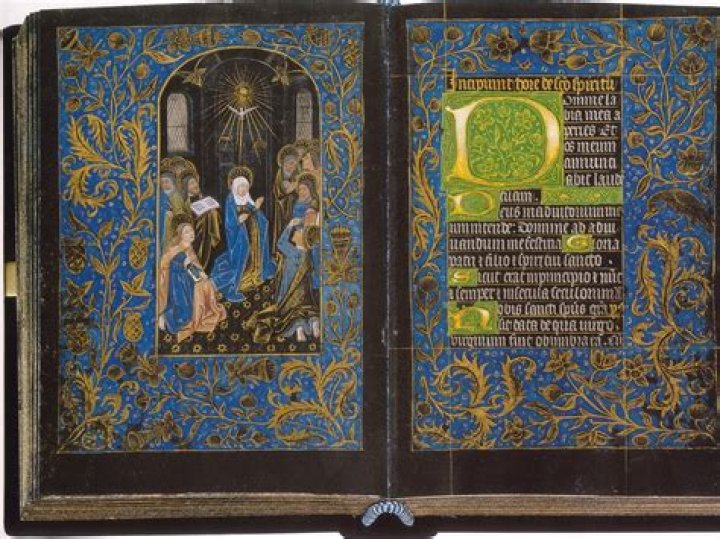 Incipiunt hore de sco spiritu
Domine la
bia mea a
peries Et
os meum
annunci
abit laude
tuam.
Deus in adiutorium me
um intende: Domine ad adiu
uandum me festina Gloria
patri i filio i spiritui sancto.
Sicut erat in principio i nūc
i semper i in secula seculorum a
Nobis sancti spūs gra
sit data de qua uirgo
virginum fuit obumbrata.